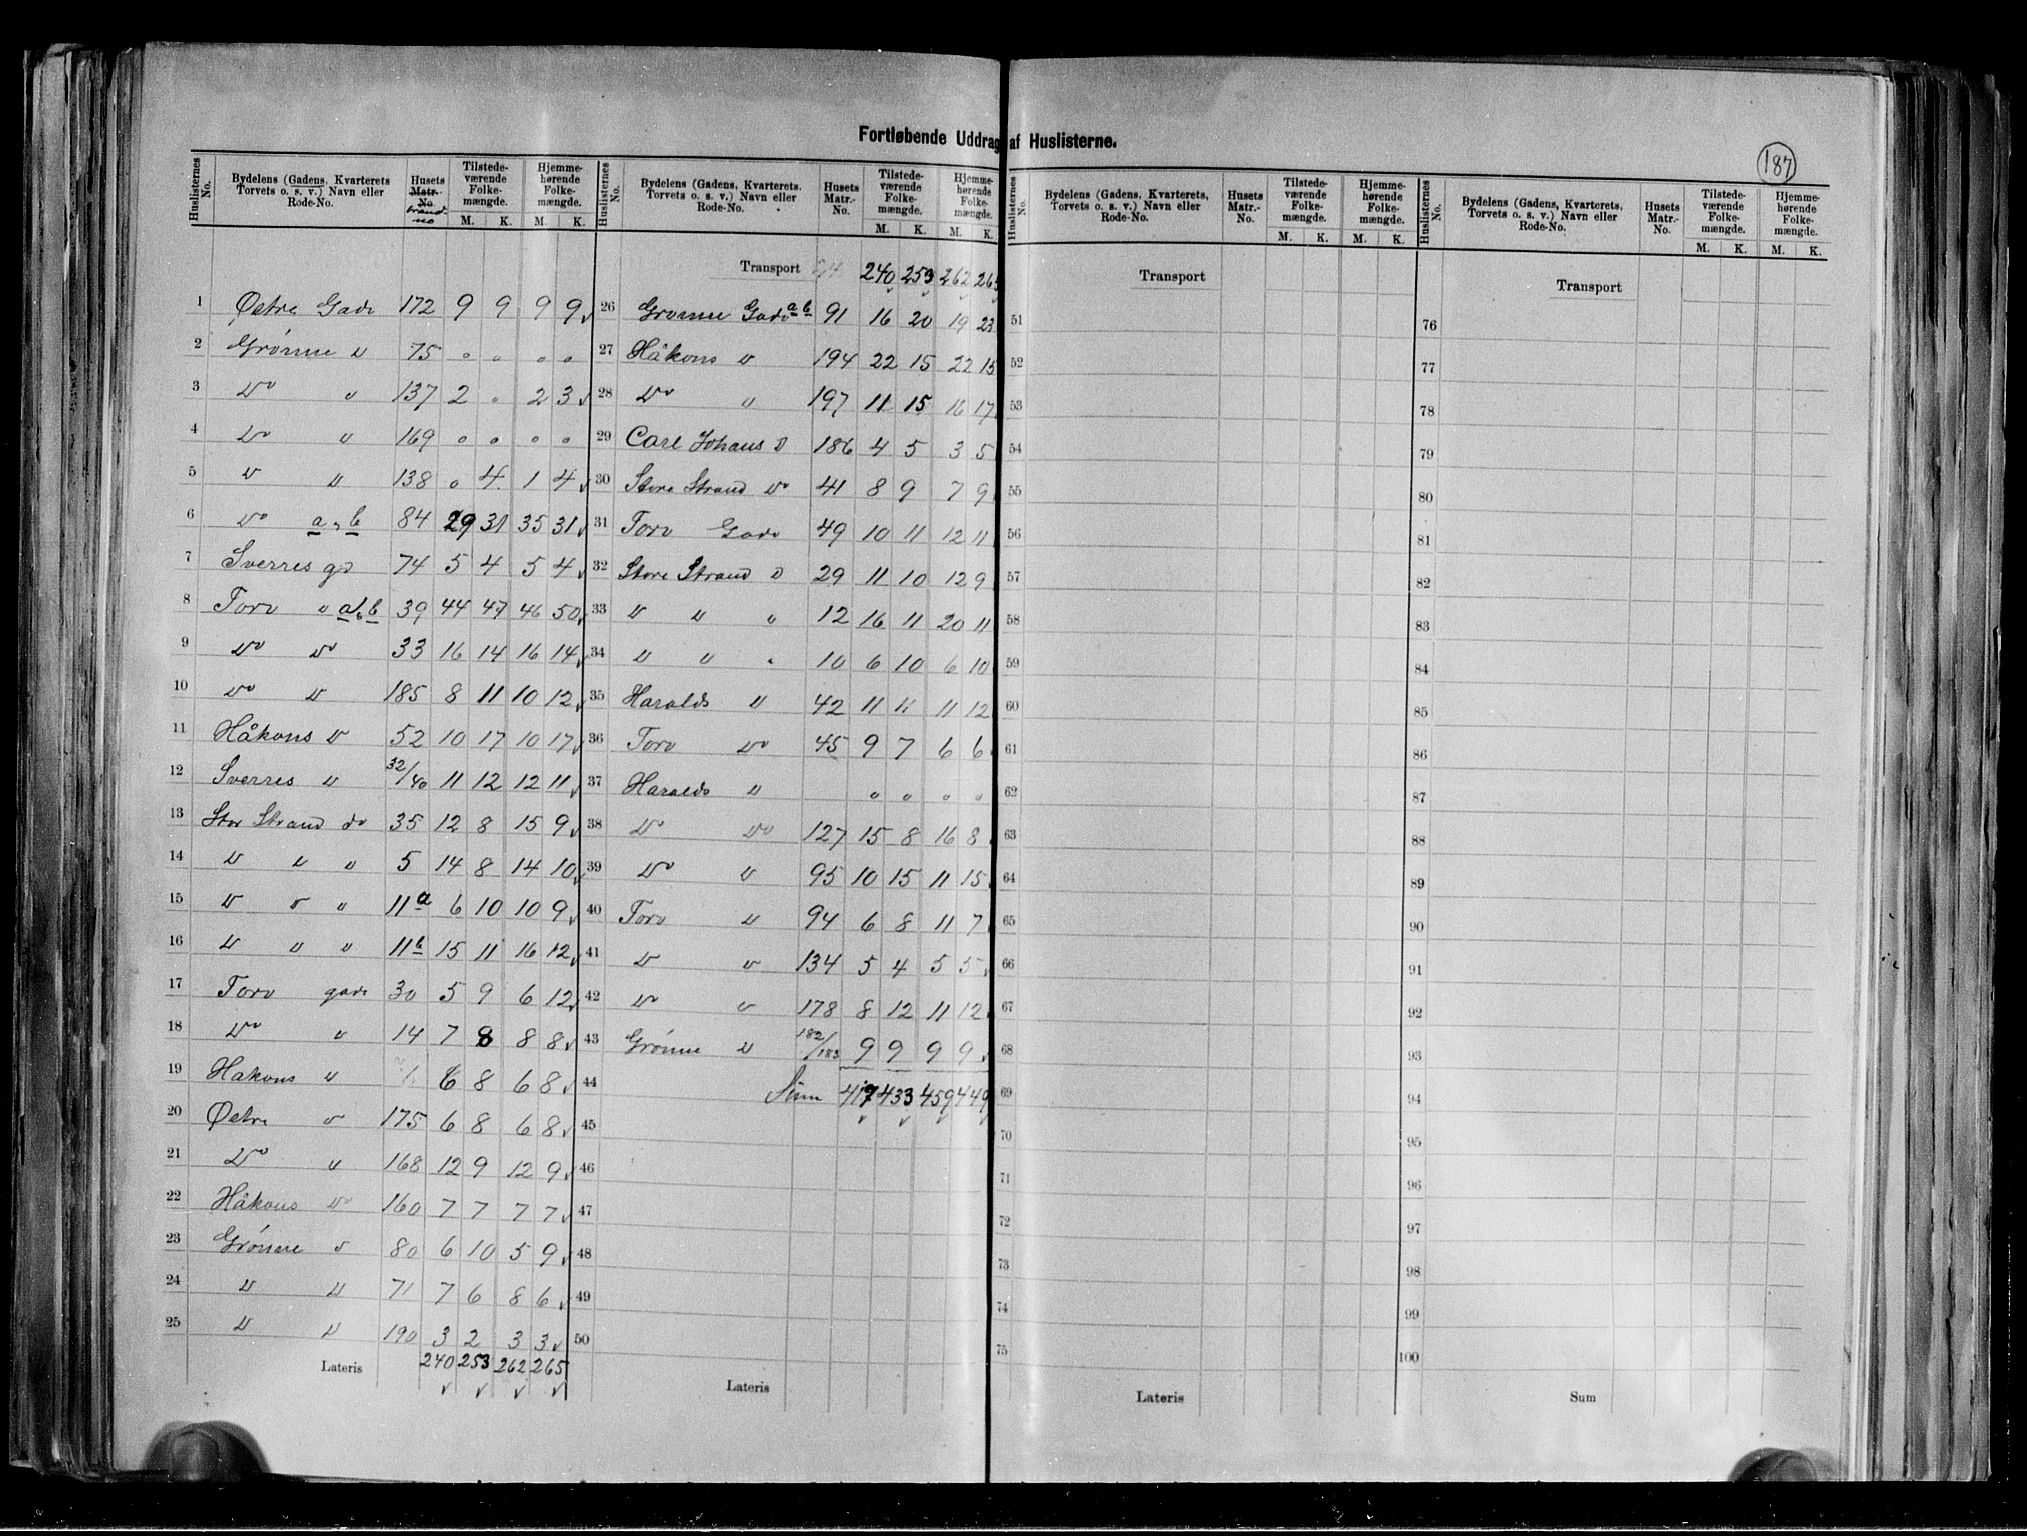 187
Fortløbende Uddrag af Huslisterne.
Huslisternes No. Bydelens (Gadens, Kvarterets Torvets o. s. v.) Navn eller Rode-No. Husets Matr.-No. brand no Tilstedeværende Folkemængde. M. K. Hjemmehørende Folkemængde. M. K.
1 Østre Gade 172 9 9 9 9
2 Grønne " 75 " " " "
3 Do " 137 2 " 2 3
4 Do " 169 " " " "
5 " " 138 " 4 1 4
6 Do a, b 84 29 31 35 31
7 Sverres gd 74 5 4 5 4
8 Torv " a, b 39 44 47 46 50
9 Do Do 33 16 14 16 14
10 Do " 185 8 11 10 12
11 Håkons " 52 10 17 10 17
12 Sverres " 32/40 11 12 12 11
13 Stor Strand do 35 12 8 15 9
14 " " " 5 14 8 14 10
15 " " " 11a 6 10 10 9
16 " " " 11b 15 11 16 12
17 Torv gade 30 5 9 6 12
18 Do " 14 7 8 8 8
19 Hakons " 6 8 6 8
20 Østre " 175 6 8 6 8
21 Do " 168 12 9 12 9
22 Håkons Do 160 7 7 7 7
23 Grönne " 80 6 10 5 9
24 " " 71 7 6 8 6
25 " " 190 3 2 3 3
Lateris 240 253 262 265
Huslisternes No. Bydelens (Gadens, Kvarterets. Torvets o. s. v.) Navn eller Rode-No. Husets Matr.-No. Tilstedeværende Folkemængde. M. K. Hjemmehørende Folkemængde. M. K.
Transport 240 253 262 265
26 Grønne Gade a b 91 16 20 19 23
27 Håkons " 194 22 15 22 15
28 Do " 197 11 15 16 17
29 Carl Johans " 186 4 5 3 5
30 Store Strand Do 41 8 9 7 9
31 Torv Gade 49 10 11 12 11
32 Store Strand " 29 11 10 12 9
33 " " " 12 16 11 20 11
34 " " " 10 6 10 6 10
35 Haralds " 42 11 11 11 12
36 Torv Do 45 9 7 6 6
37 Haralds " " " " "
38 Do Do 127 15 8 16 8
39 Do " 95 10 15 11 15
40 Torv " 94 6 8 11 7
41 " " 134 5 4 5 5
42 Do " 178 8 12 11 12
43 Grönne " 182/183 9 9 9 9
44 Sum 417 433 459 449
45
46
47
48
49
50
Lateris
Huslisternes No. Bydelens (Gadens, Kvarterets, Torvets o. s. v.) Navn eller Rode-No. Husets Matr.-No. Tilstedeværende Folkemængde. M. K. Hjemmehørende Folkemængde. M. K.
Transport
51
52
53
54
55
56
57
58
59
60
61
62
63
64
65
66
67
68
69
70
71
72
73
74
75
Lateris
Huslisternes No. Bydelens (Gadens, Kvarterets, Torvets o. s. v.) Navn eller Rode-No. Husets Matr.-No. Tilstedeværende Folkemængde. M. K. Hjemmehørende Folkemængde. M. K.
Transport
76
77
78
79
80
81
82
83
84
85
86
87
88
89
90
91
92
93
94
95
96
97
98
99
100
Sum